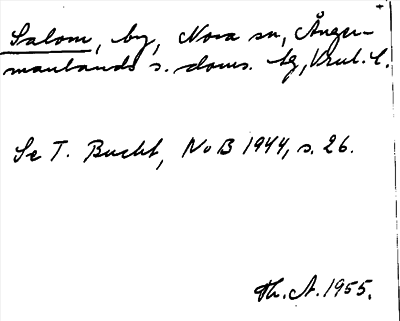 Salom, by, Nora sn, Ånger-
manlands s. doms. tg, Vnl. l.
Se T. Bucht, NoB 1944, s. 26.
Th. A. 1955.